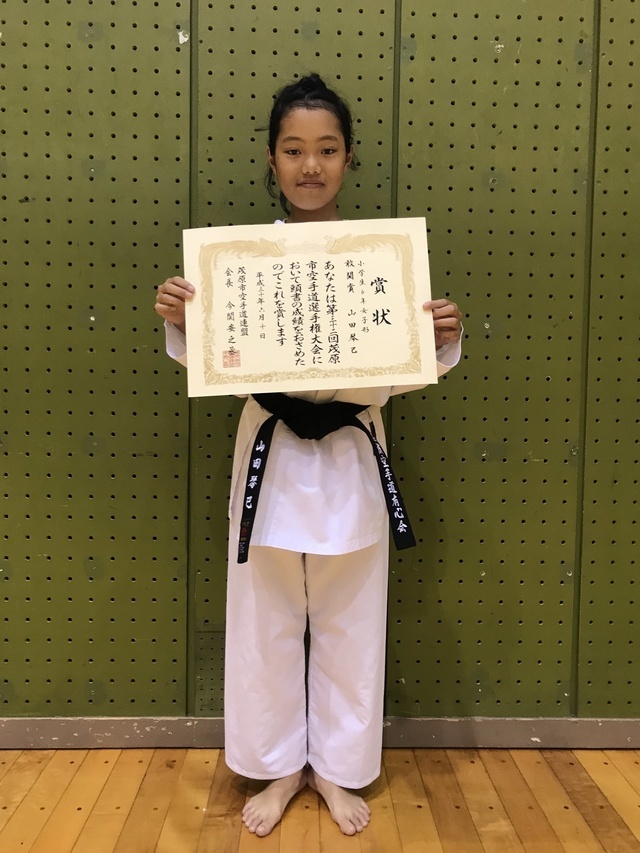 賞状
小学生6年女子形
敢闘賞 山田琴己
あなたは第三十二回茂原
市空手道選手権大会に
おいて頭書の成績をおさめた
のでこれを賞します
平成三十年六月十日
茂原市空手道連盟
会長 今関安之
山田琴己
空手道有心会